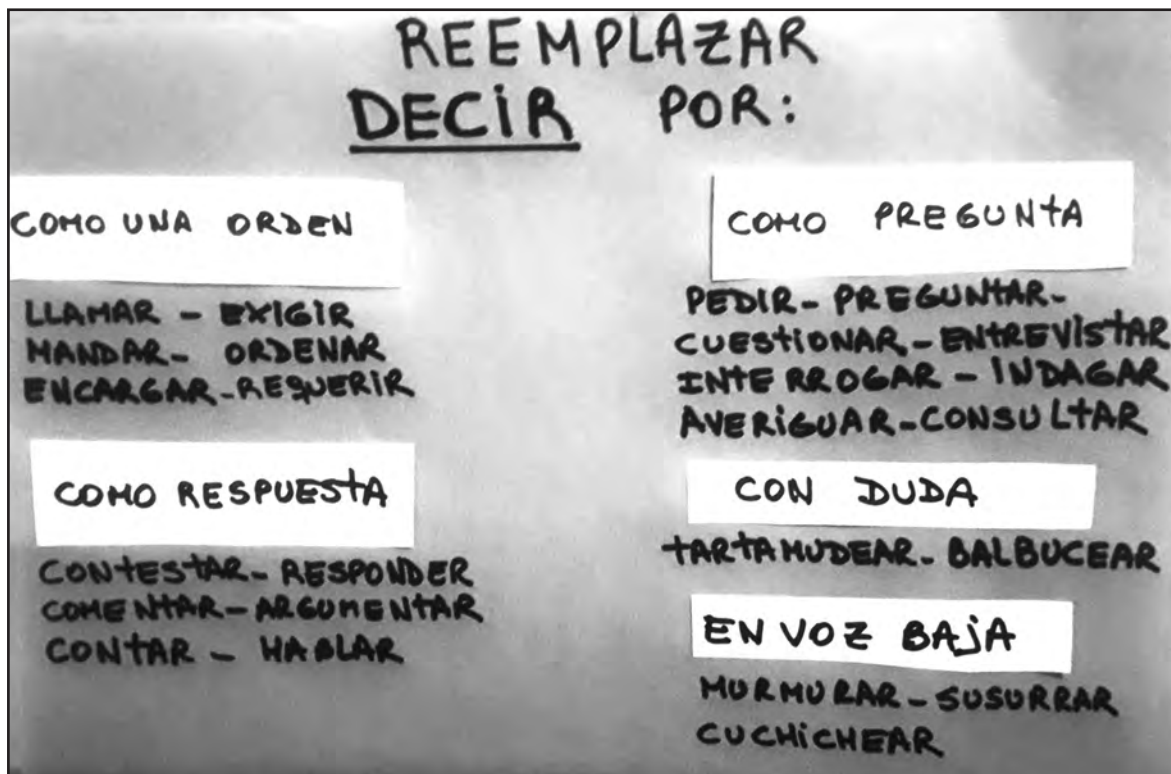 REEMPLAZAR
DECIR POR:
COMO UNA ORDEN
LLAMAR - EXIGIR
MANDAR- ORDENAR
ENCARGAR-REQUERIR
COMO RESPUESTA
CONTESTAR- RESPONDER
COMENTAR-ARGUMENTAR
CONTAR - HABLAR
COMO PREGUNTA
PEDIR- PREGUNTAR-
CUESTIONAR-ENTREVISTAR
INTERROGAR - INDAGAR
AVERIGUAR-CONSULTAR
CON DUDA
TARTAMUDEAR- BALBUCEAR
EN VOZ BAJA
MURMURAR-SUSURRAR
CUCHICHEAR